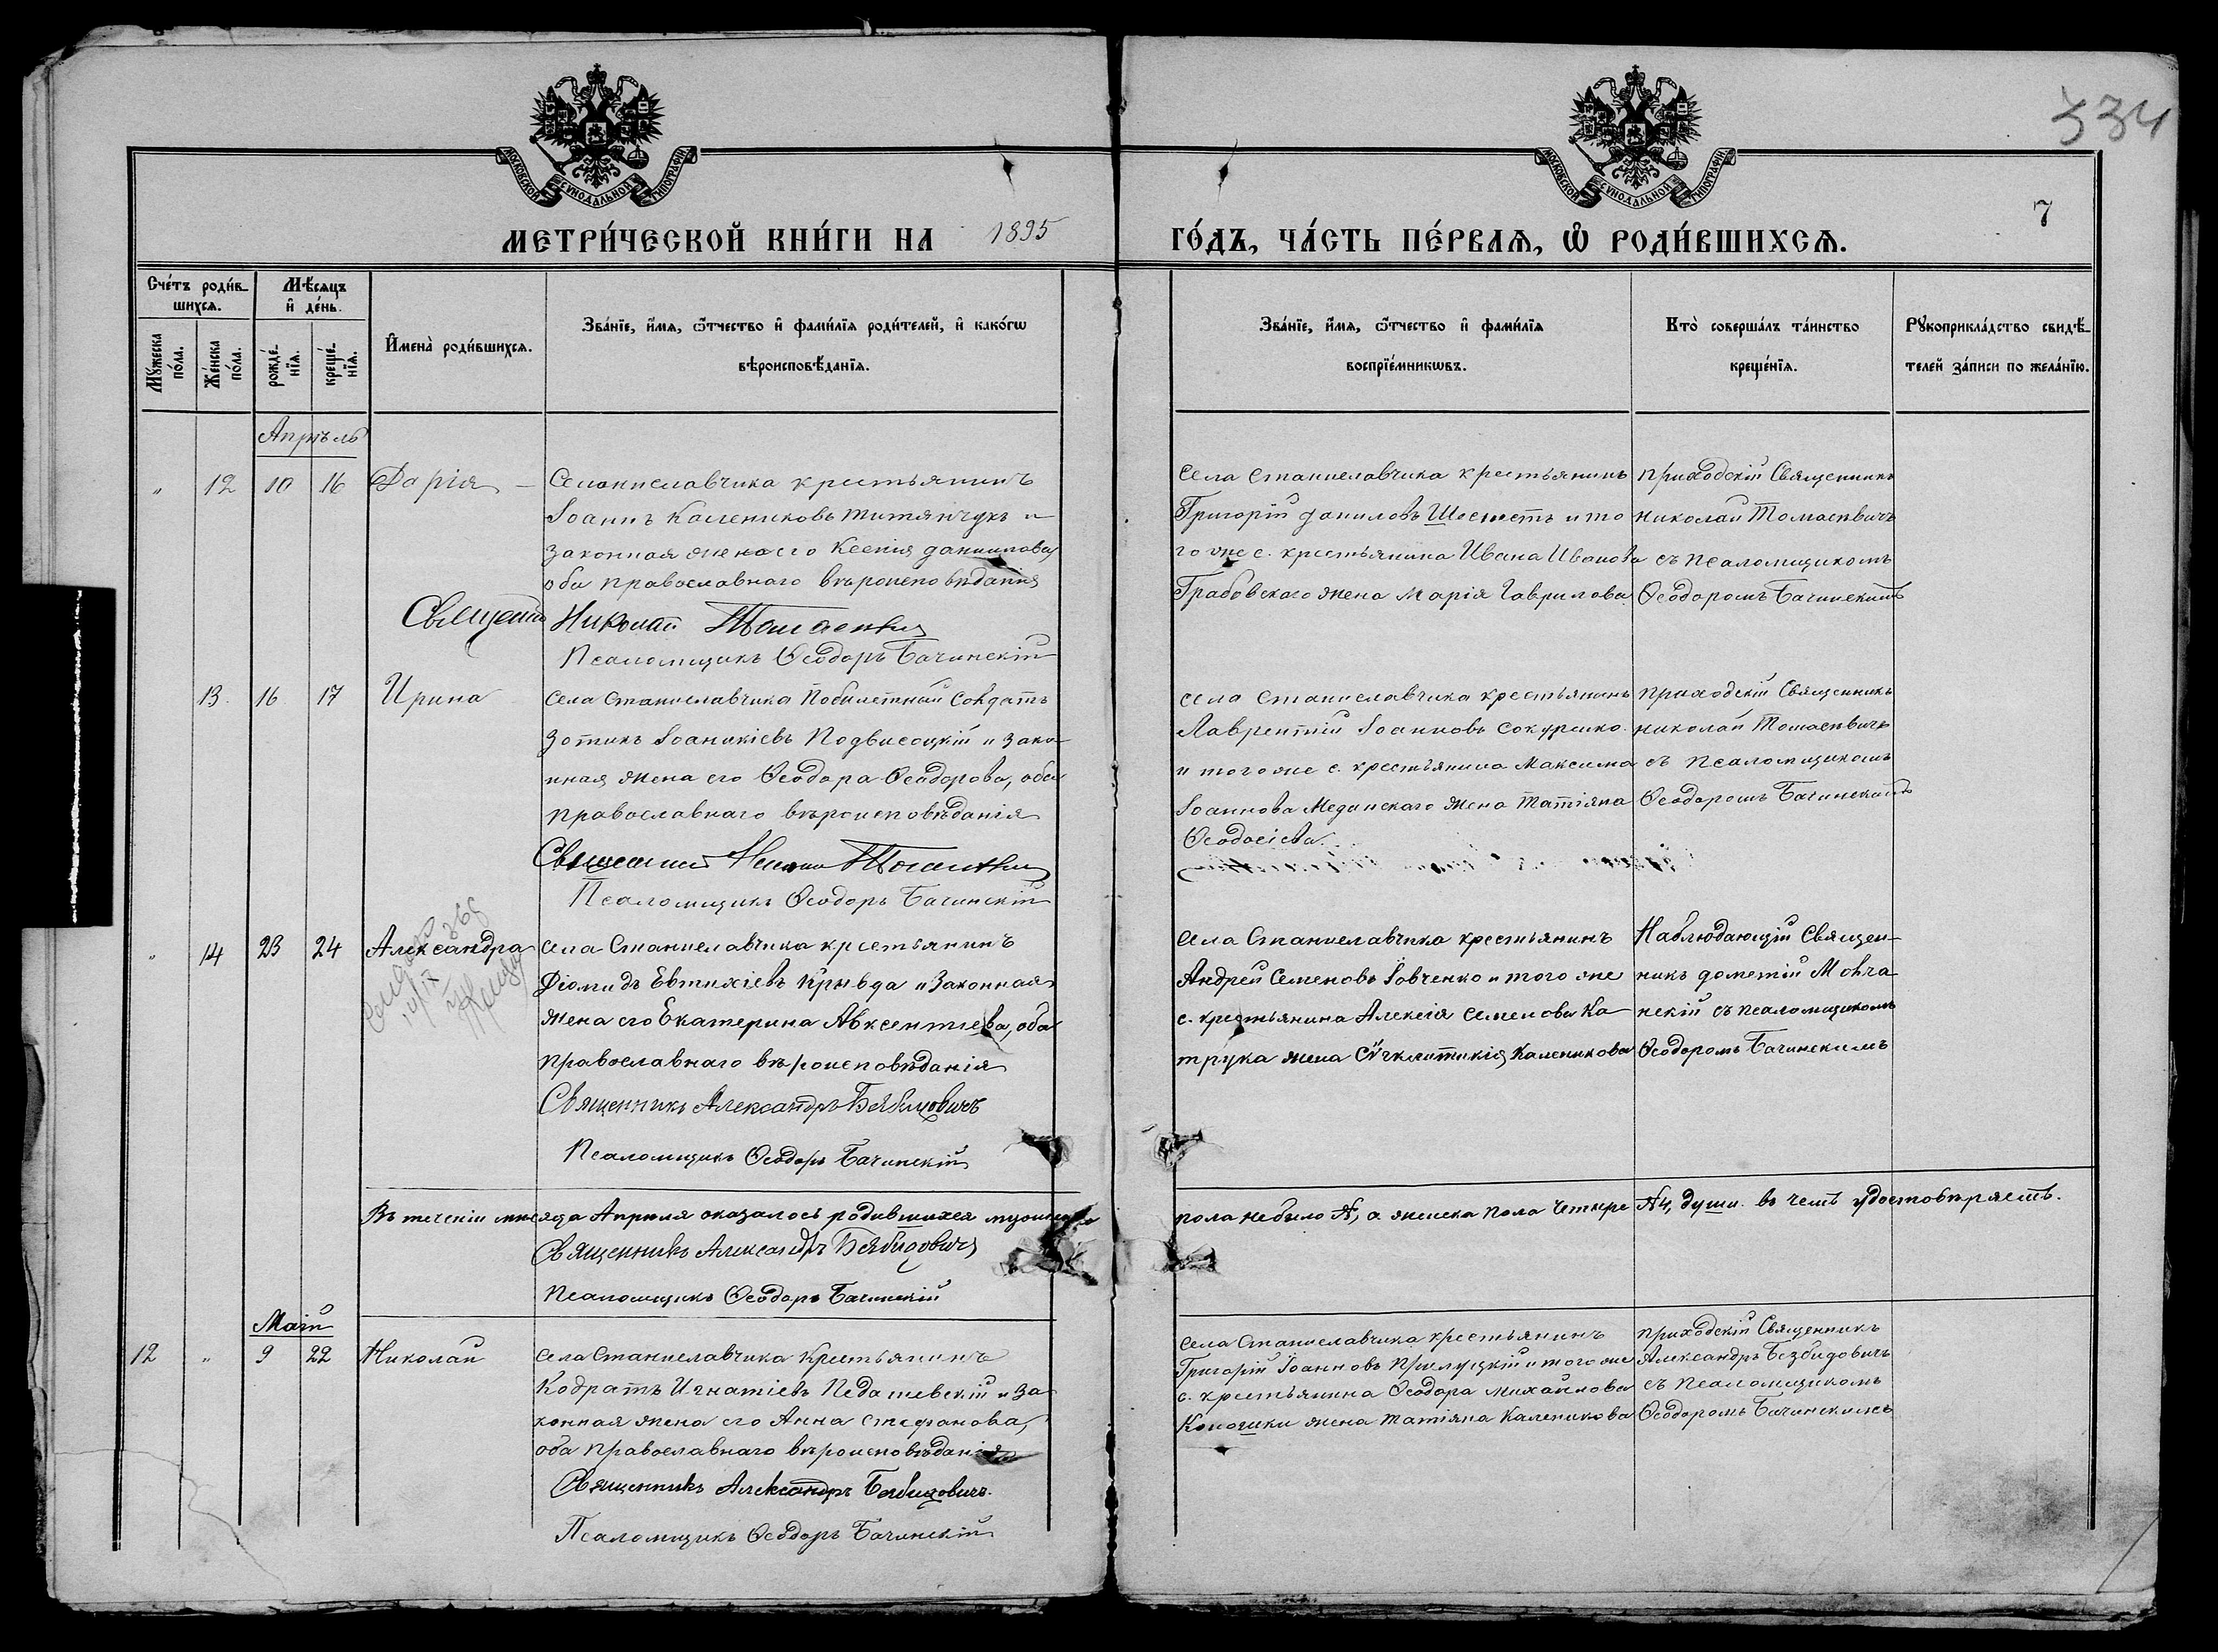 334
7
МОСКОВСКОЙ СѴНОДАЛЬНОЙ ТИПОГРАФІИ
МОСКОВСКОЙ СѴНОДАЛЬНОЙ ТИПОГРАФІИ
МЕТРИ́ЧЕСКОЙ КНИ́ГИ НА 1895 ГО́ДЪ, ЧА́СТЬ ПЕ́РВАѦ, Ѡ҆ РОДИ́ВШИХСѦ.
Сче́тъ роди́в-
шихсѧ.
Мꙋ́жеска по́ла.
Же́нска по́ла.
Мѣ́сѧцъ
и҆ де́нь.
рожде́-
нїѧ.
креще́-
нїѧ.
И҆мена̀ роди́вшихсѧ.
Зва́нїе, и҆́мѧ, ѻ҆́тчество и҆ фами́лїѧ роди́телей, и҆ како́гѡ
вѣроисповѣ́данїѧ.
Зва́нїе, и҆́мѧ, ѻ҆́тчество и҆ фами́лїѧ
воспрїе́мникѡвъ.
Кто̀ соверша́лъ та́инство
креще́нїѧ.
Рꙋкоприкла́дство свидѣ́-
телей за́писи по жела́нїю.
Апрѣль
" 12 10 16 Дарія
Села Станиславчика крестьянинъ
Іоаннъ Калениковъ Титянчукъ и
законная жена его Ксенія Даниилова,
оба православнаго вѣроисповѣданія
Священникъ Николай Томасевичъ
Псаломщикъ Ѳеодоръ Бачинскій
Села Станиславчика крестьянинъ
Григорій Даниловъ Шосметъ и то
го же с. крестьянина Ивана Иванова
Грабовскаго жена Марія Гаврилова
Приходскій Священникъ
Николай Томасевичъ
съ псаломщикомъ
Ѳеодоромъ Бачинскимъ
13. 16 17 Ирина
Села Станиславчика побилетный солдатъ
Зотикъ Іоаникіевъ Подвисоцкій и зако-
нная жена его Ѳеодора Ѳеодорова, оба
православнаго вѣроисповѣданія
Священникъ Николай Томасевичъ
Псаломщикъ Ѳеодоръ Бачинскій
Села Станиславчика крестьянинъ
Лаврентій Іоанновъ Сокуренко
и того же с. крестьянина Максима
Іоаннова Меданскаго жена Татіяна
Ѳеодосіева.
Приходскій Священникъ
Николай Томасевичъ
съ псаломщикомъ
Ѳеодоромъ Бачинскимъ
" 14 23 24 Александра
Села Станиславчика крестьянинъ
Діомидъ Евтихіевъ Крывда и законная
жена его Екатерина Авксентіева, оба
православнаго вѣроисповѣданія
Священникъ Александръ Безбидовичъ
Псаломщикъ Ѳеодоръ Бачинскій
Села Станиславчика крестьянинъ
Андрей Семеновъ Іовченко и того же
с. крестьянина Алексія Семенова Ка
трука жена Сѵнклитикія Каленикова
Наблюдающій Священ-
никъ Дометій Молча
нскій съ псаломщикомъ
Ѳеодоромъ Бачинскимъ
Въ теченіи мѣсяца Апрѣля оказалось родившихся мужеска пола небыло №, а женска пола четыре №4, души. въ чемъ удостовѣряемъ.
Священникъ Александръ Безбидовичъ
Псаломщикъ Ѳеодоръ Бачинскій
Маій
12 " 9 22 Николай
Села Станиславчика крестьянинъ
Кодратъ Игнатіевъ Педашевскій и за
конная жена его Анна Стефанова,
оба православнаго вѣроисповѣданія
Священникъ Александръ Безбидовичъ.
Псаломщикъ Ѳеодоръ Бачинскій
Села Станиславчика крестьянинъ
Григорій Іоанновъ Прилуцкій и того же
с. крестьянина Ѳеодора Михайлова
Коношки жена Татіяна Каленикова
Приходскій Священникъ
Александръ Безбидовичъ
съ псаломщикомъ
Ѳеодоромъ Бачинскимъ